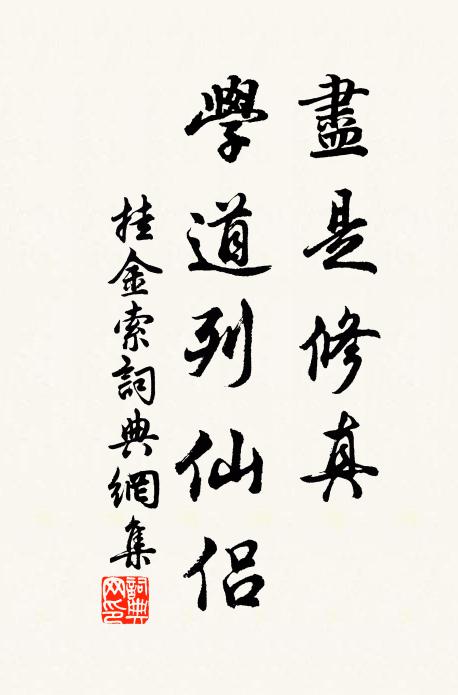 盡是修真
學道列仙侶
挂金索詞典網集
詞典
网印